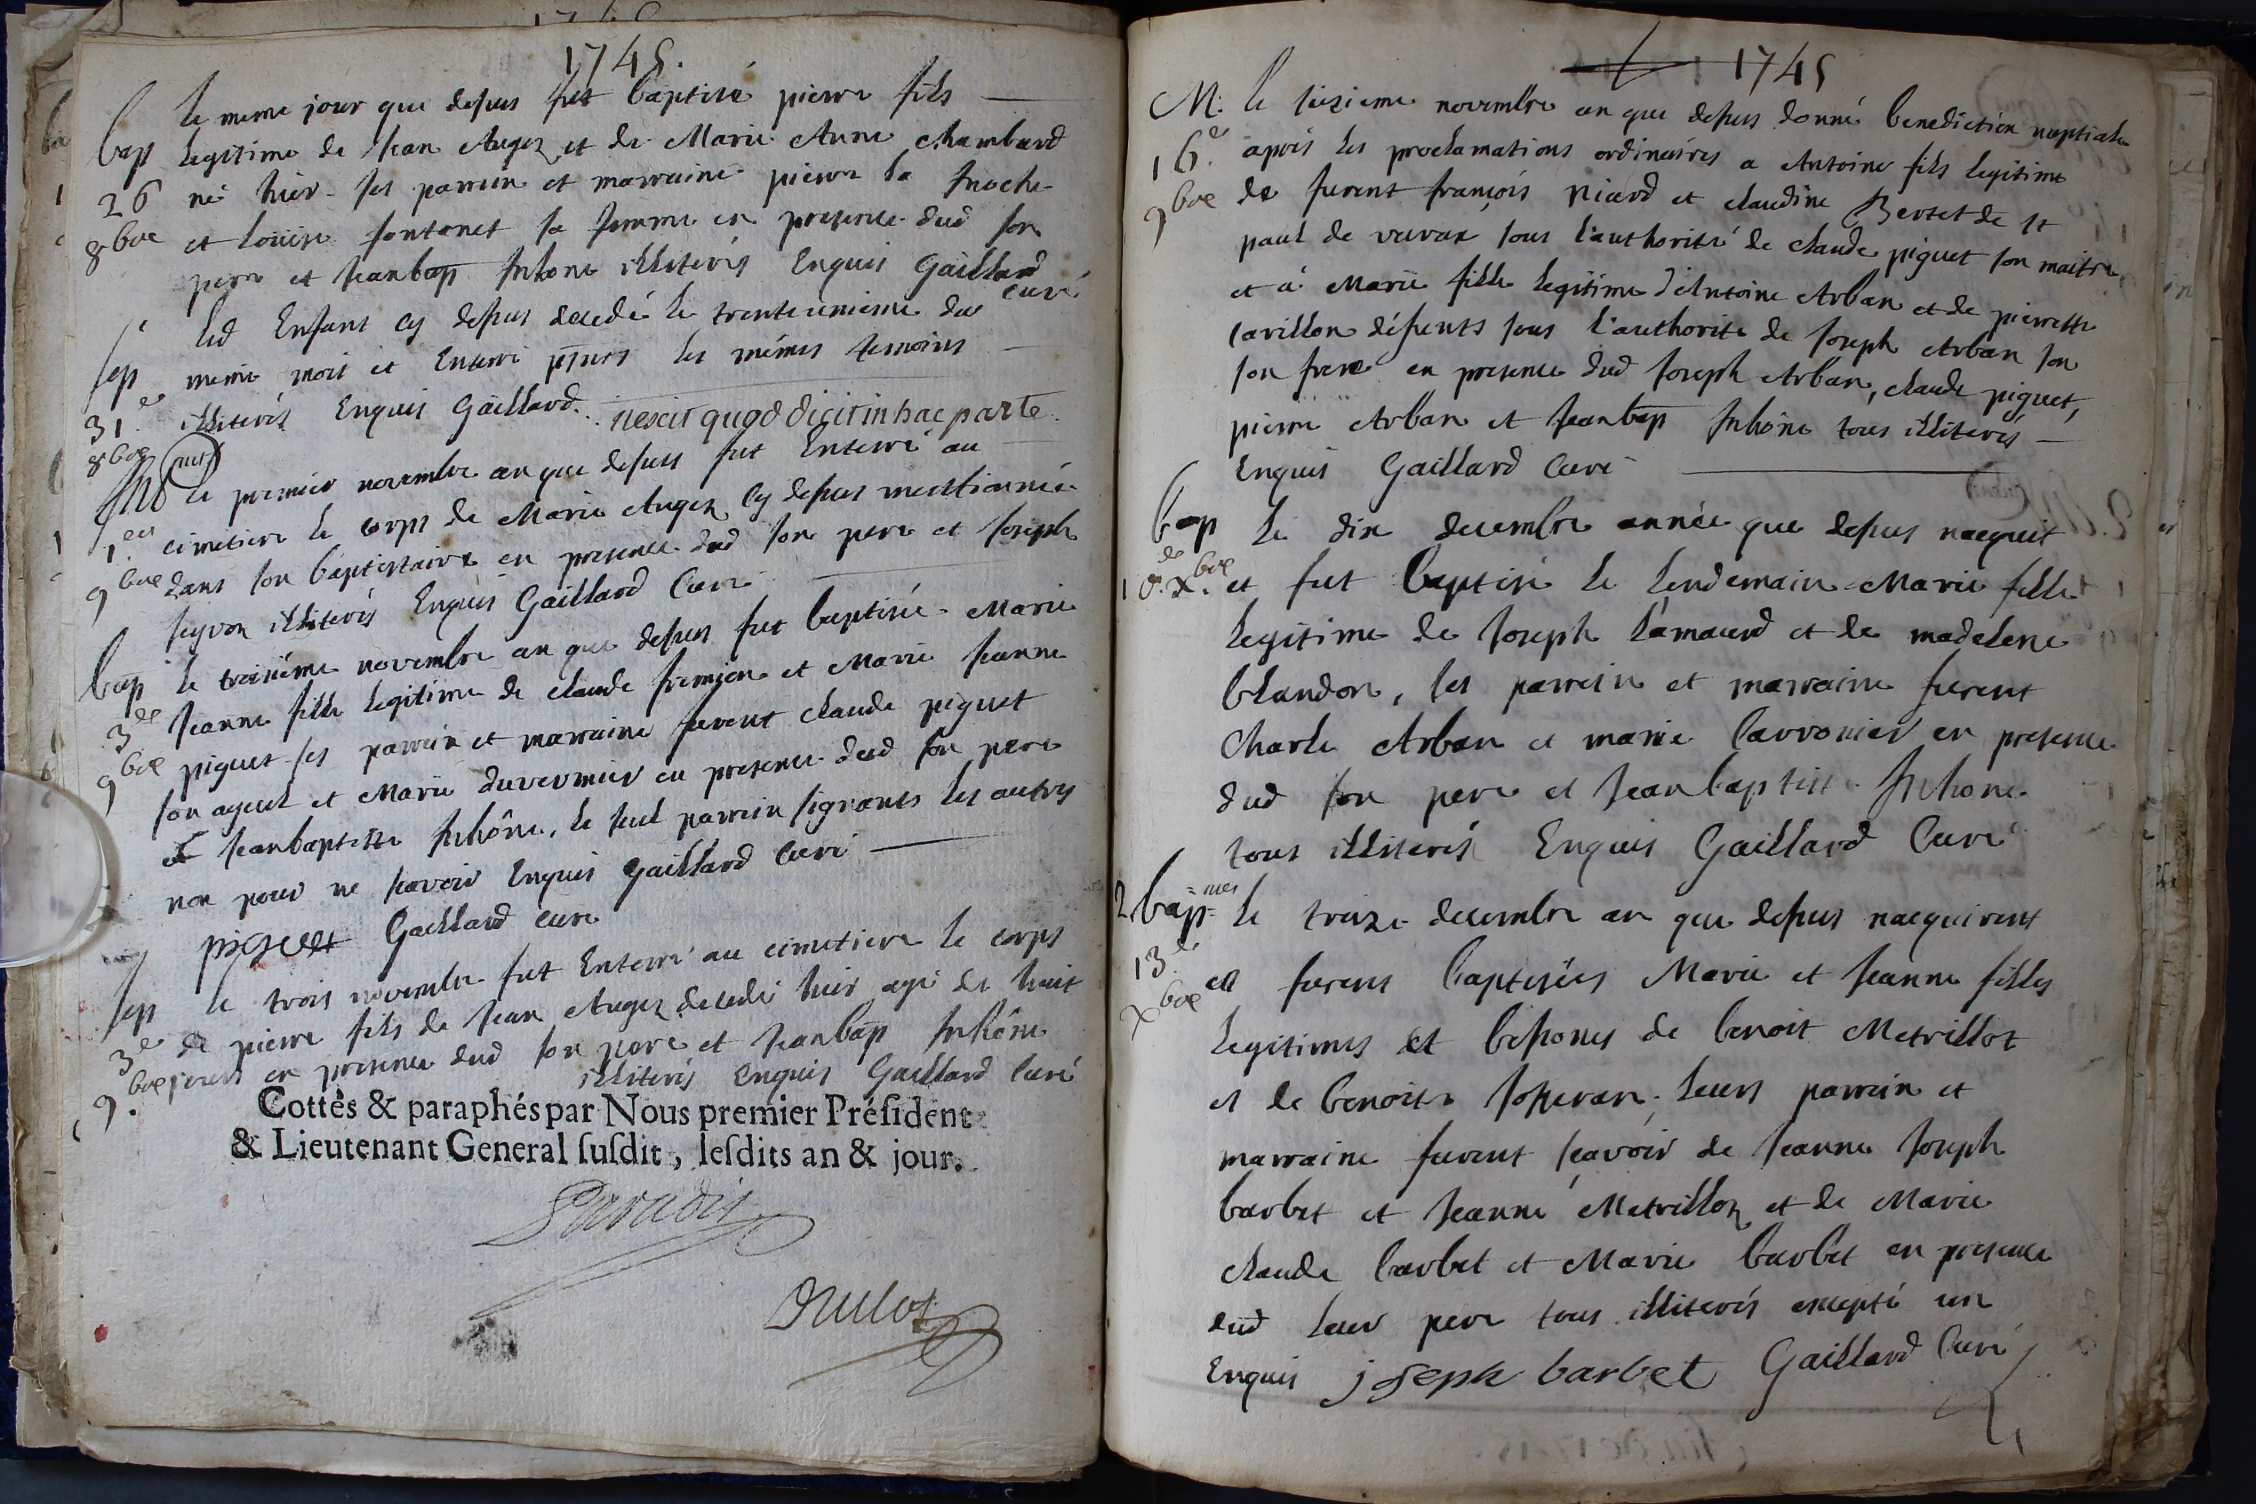 1745.
le meme jour que dessus fut baptisé pierre fils
bap legitime de Jean Auger et de Marie Anne Chambard
26 né hier. ses parrein et marraine pierre la
8bre et Louise fontanet sa femme en presence dud son
pere et Jeanbap Inhone illiterés Enquis Gaillard
curé
led Enfant cy dessus decedé le trenteunieme du
sep meme mois et Enterré les mêmes temoins
31e illiterés Enquis Gaillard. nescit quod dicit in hac parte
8bre
le premier novembre an que dessus fut Enterré au
1er cimetiere le corps de Marie Auger cy dessus mentionnée
9bre dans son baptistaire en presence dud son pere et Joseph
seyvon illiterés Enquis Gaillard Curé
bap le troisiéme novembre an que dessus fut baptisée Marie
3e Jeanne fille legitime de claude fremion et Marie Jeanne
9bre piguet ses parrein et marraine furent claude piguet
son ayeul et Marie duvernier en presence dud son pere
et Jeanbaptiste Inhône, le seul parrein signants les autres
non pour ne scavoir Enquis Gaillard Curé
piguet Gaillard curé
sep le trois novembre fut Enterré au cimetiere le corps
3e de pierre fils de Jean Auger decedé hier agé de huit
9bre jours en presence dud son pere et Jeanbap Inhône
illiterés Enquis Gaillard Curé
Cottés & paraphés par Nous premier Préſident
& Lieutenant General ſuſdit, leſdits an & jour.
Paradis
1745
M. le seizieme novembre an que dessus donné benediction nuptiale
16e après les proclamations ordinaires a Antoine fils legitime
9bre de furent françois Niard et claudine Bertet de St
paul de varax sous l'authorité de claude piguet son maitre
et à Marie fille legitime d'Antoine Arban et de pierrette
cavillon défunts sous l'authorité de Joseph Arban son
son frere en presence dud Joseph Arban, claude piguet,
pierre Arban et Jeanbap Inhône tous illiterés
Enquis Gaillard Curé
bap le dix decembre année que dessus naequit
10e xbre et fut baptisé le lendemain Marie fille
legitime de Joseph Lamaurd et de madelene
blandon, ses parrein et marraine furent
Charle Arban et marie Carronier en presence
dud son pere et Jeanbaptiste Inhone
tous illiterés Enquis Gaillard Curé
2 bap=mes le treize decembre an que dessus naequirent
13e
xbre et furent baptisées Marie et Jeanne filles
legitimes et bessones de benoit Metrillot
et de benoite Josseran. leurs parrein et
marraine furent scavoir de Jeanne Joseph
barbet et Jeanne Metrillot et de Marie
claude barbet et Marie barbet en presence
dud leur pere tous illiterés excepté un
Enquis joseph barbet Gaillard Curé